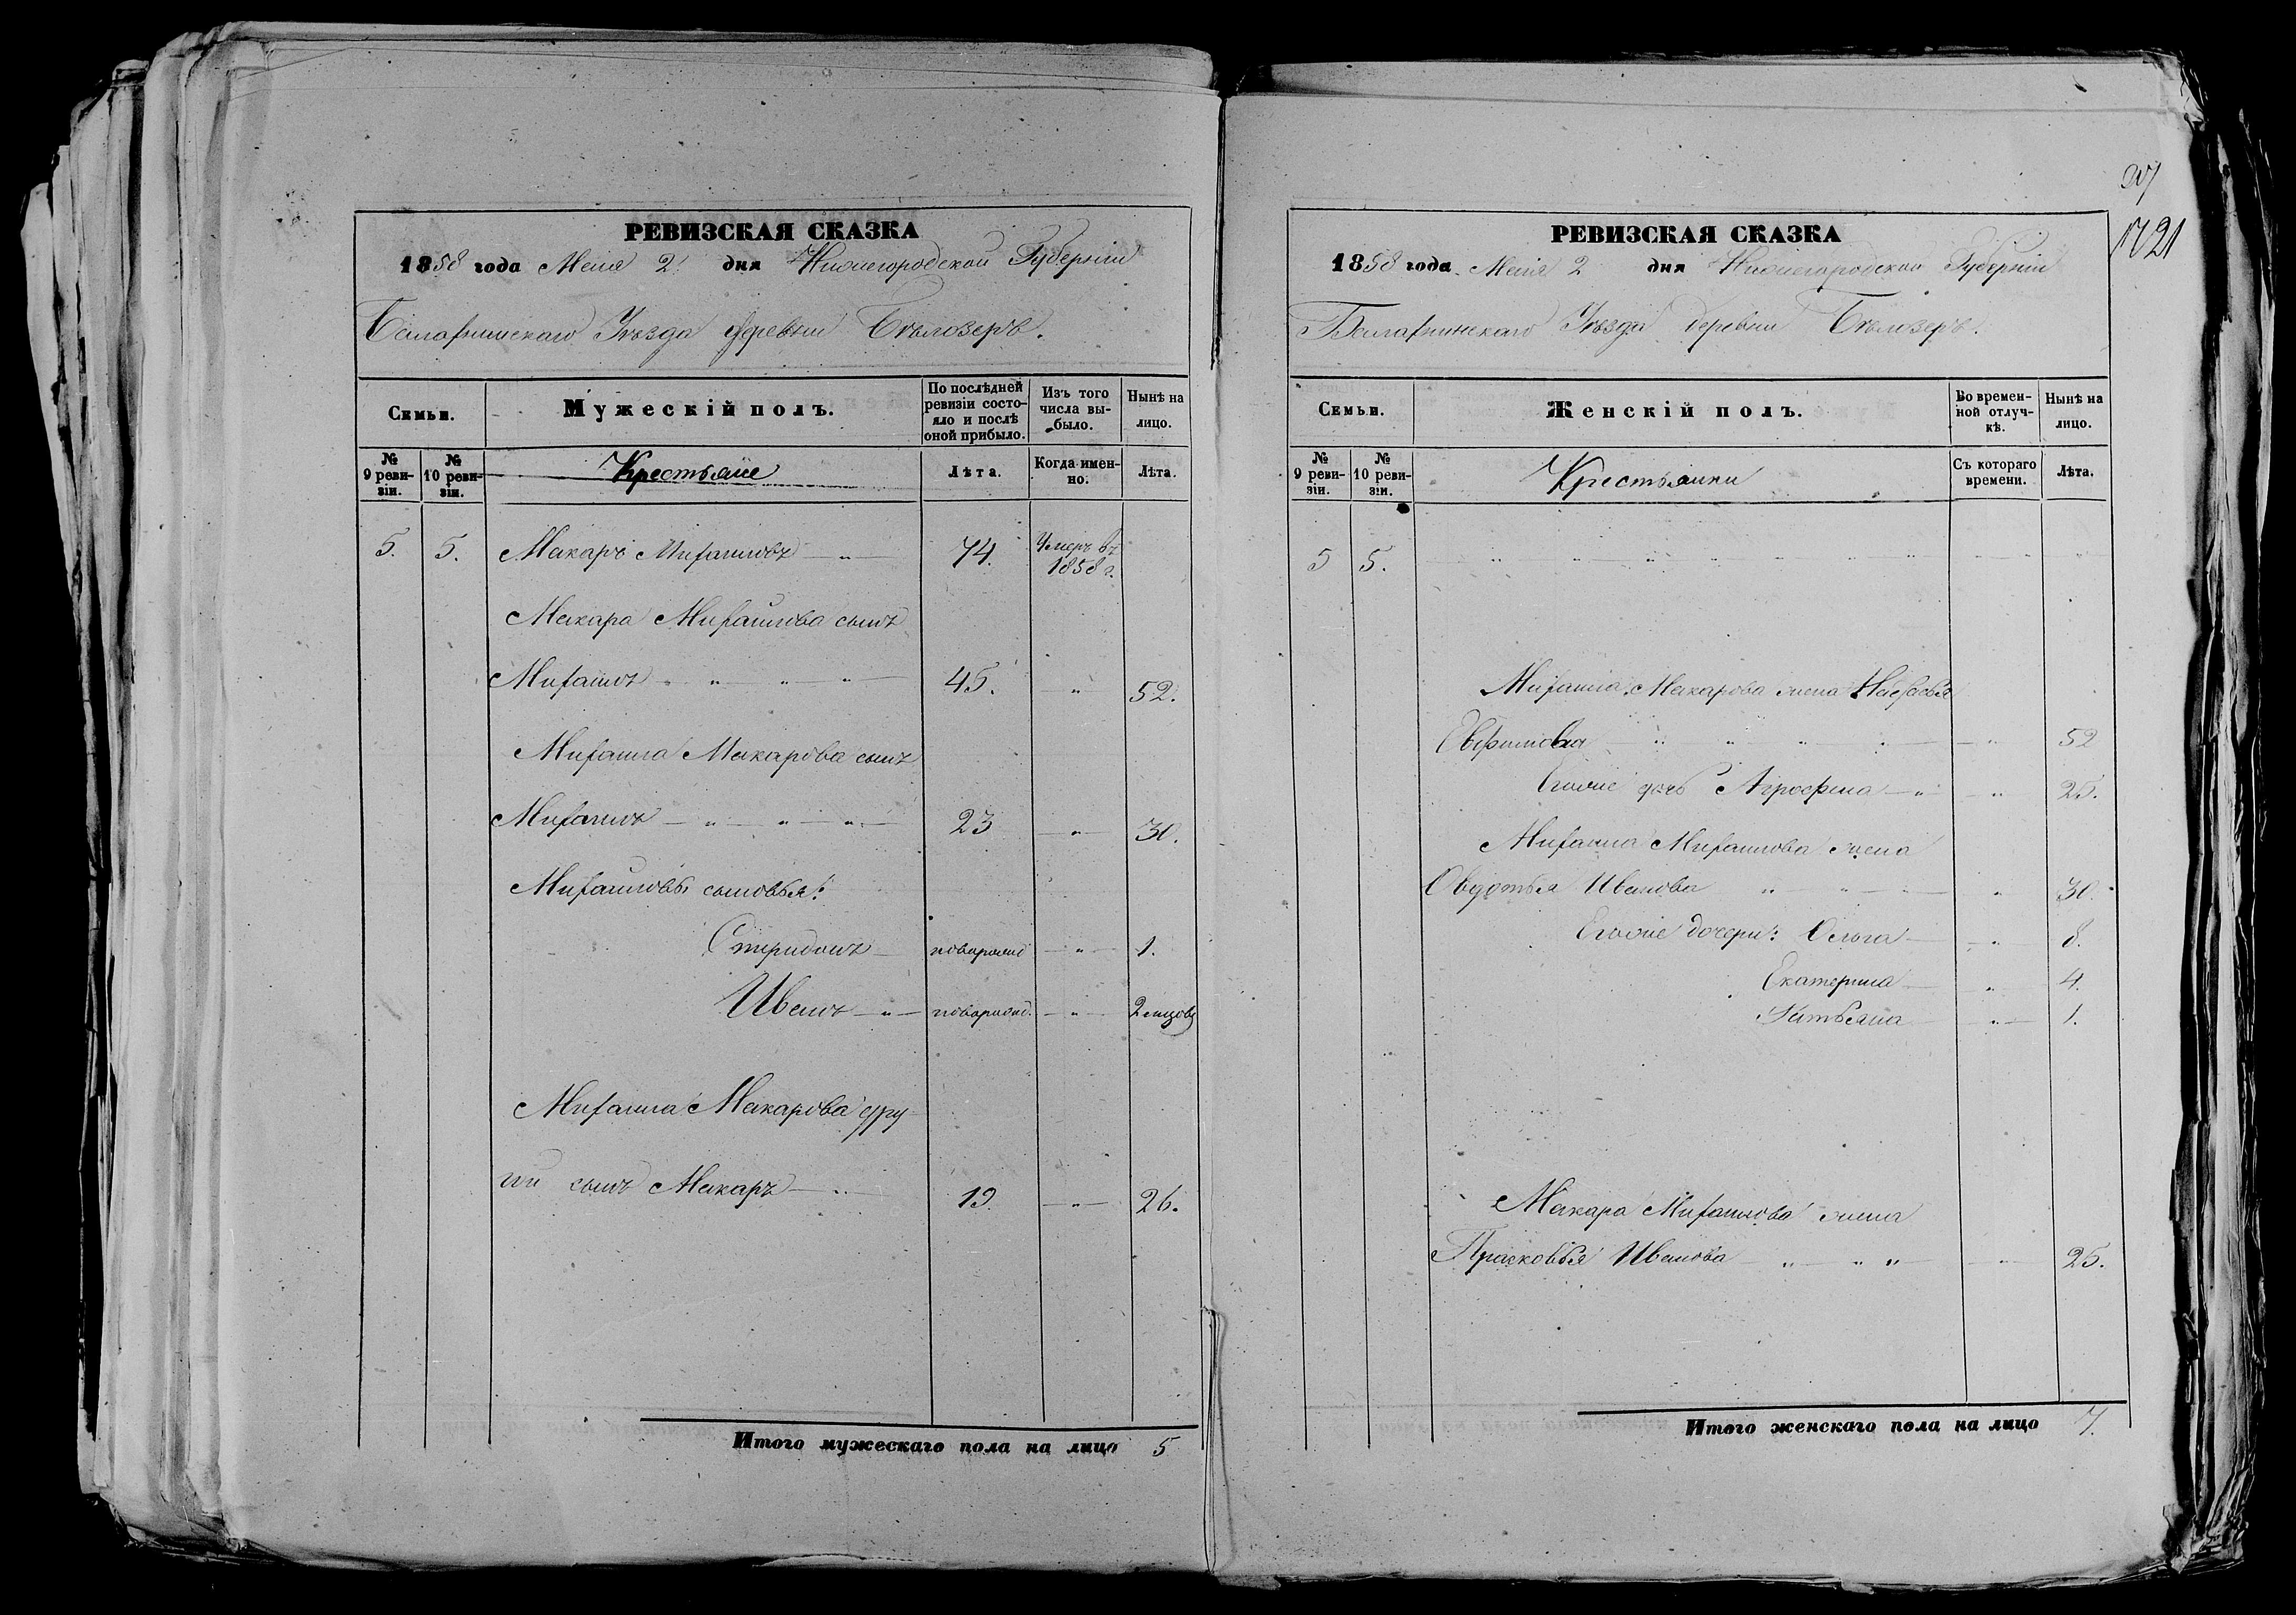 РЕВИЗСКАЯ СКАЗКА
1858 года Маія 2 дня Нижегородской Губерніи
Балахнинскаго Уѣзда деревни Бѣлозеръ.
Семьи.
Мужескій полъ.
По послѣдней ревизіи состояло и послѣ оной прибыло.
Изъ того числа выбыло.
Нынѣ на лицо.
№ 9 ревизіи.
№ 10 ревизіи.
Крестьяне
Лѣта.
Когда именно.
Лѣта.
5. 5. Макаръ Михаиловъ 74. Умеръ въ 1858 г.
Макара Михайлова сынъ
Михаилъ 45. 52.
Михаила Макарова сынъ
Михаилъ 23 30.
Михайловы сыновья:
Спиридонъ новорожд 1.
Иванъ новорожд. 2 мѣсяцовъ
Михаила Макарова дру-
гій сынъ Макаръ 19. 26.
Итого мужескаго пола на лицо 5
1721
РЕВИЗСКАЯ СКАЗКА
1858 года Маія 2 дня Нижегородской Губерніи
Балахнинскаго Уѣзда деревни Бѣлозеръ.
Семьи.
Женскій полъ.
Во временной отлучкѣ.
Нынѣ на лицо.
№ 9 ревизіи.
№ 10 ревизіи.
Крестьянки
Съ котораго времени.
Лѣта.
5 5.
Михаила Макарова жена Настасья
Евфимовна 52
Егожие дочь Агрофена 25.
Михаила Михаилова жена
Овдотья Иванова 30.
Егожие дочери: Ольга 8.
Екатерина 4.
Татьяна 1.
Макара Михаилова жена
Прасковья Иванова 25.
Итого женскаго пола на лицо 7.